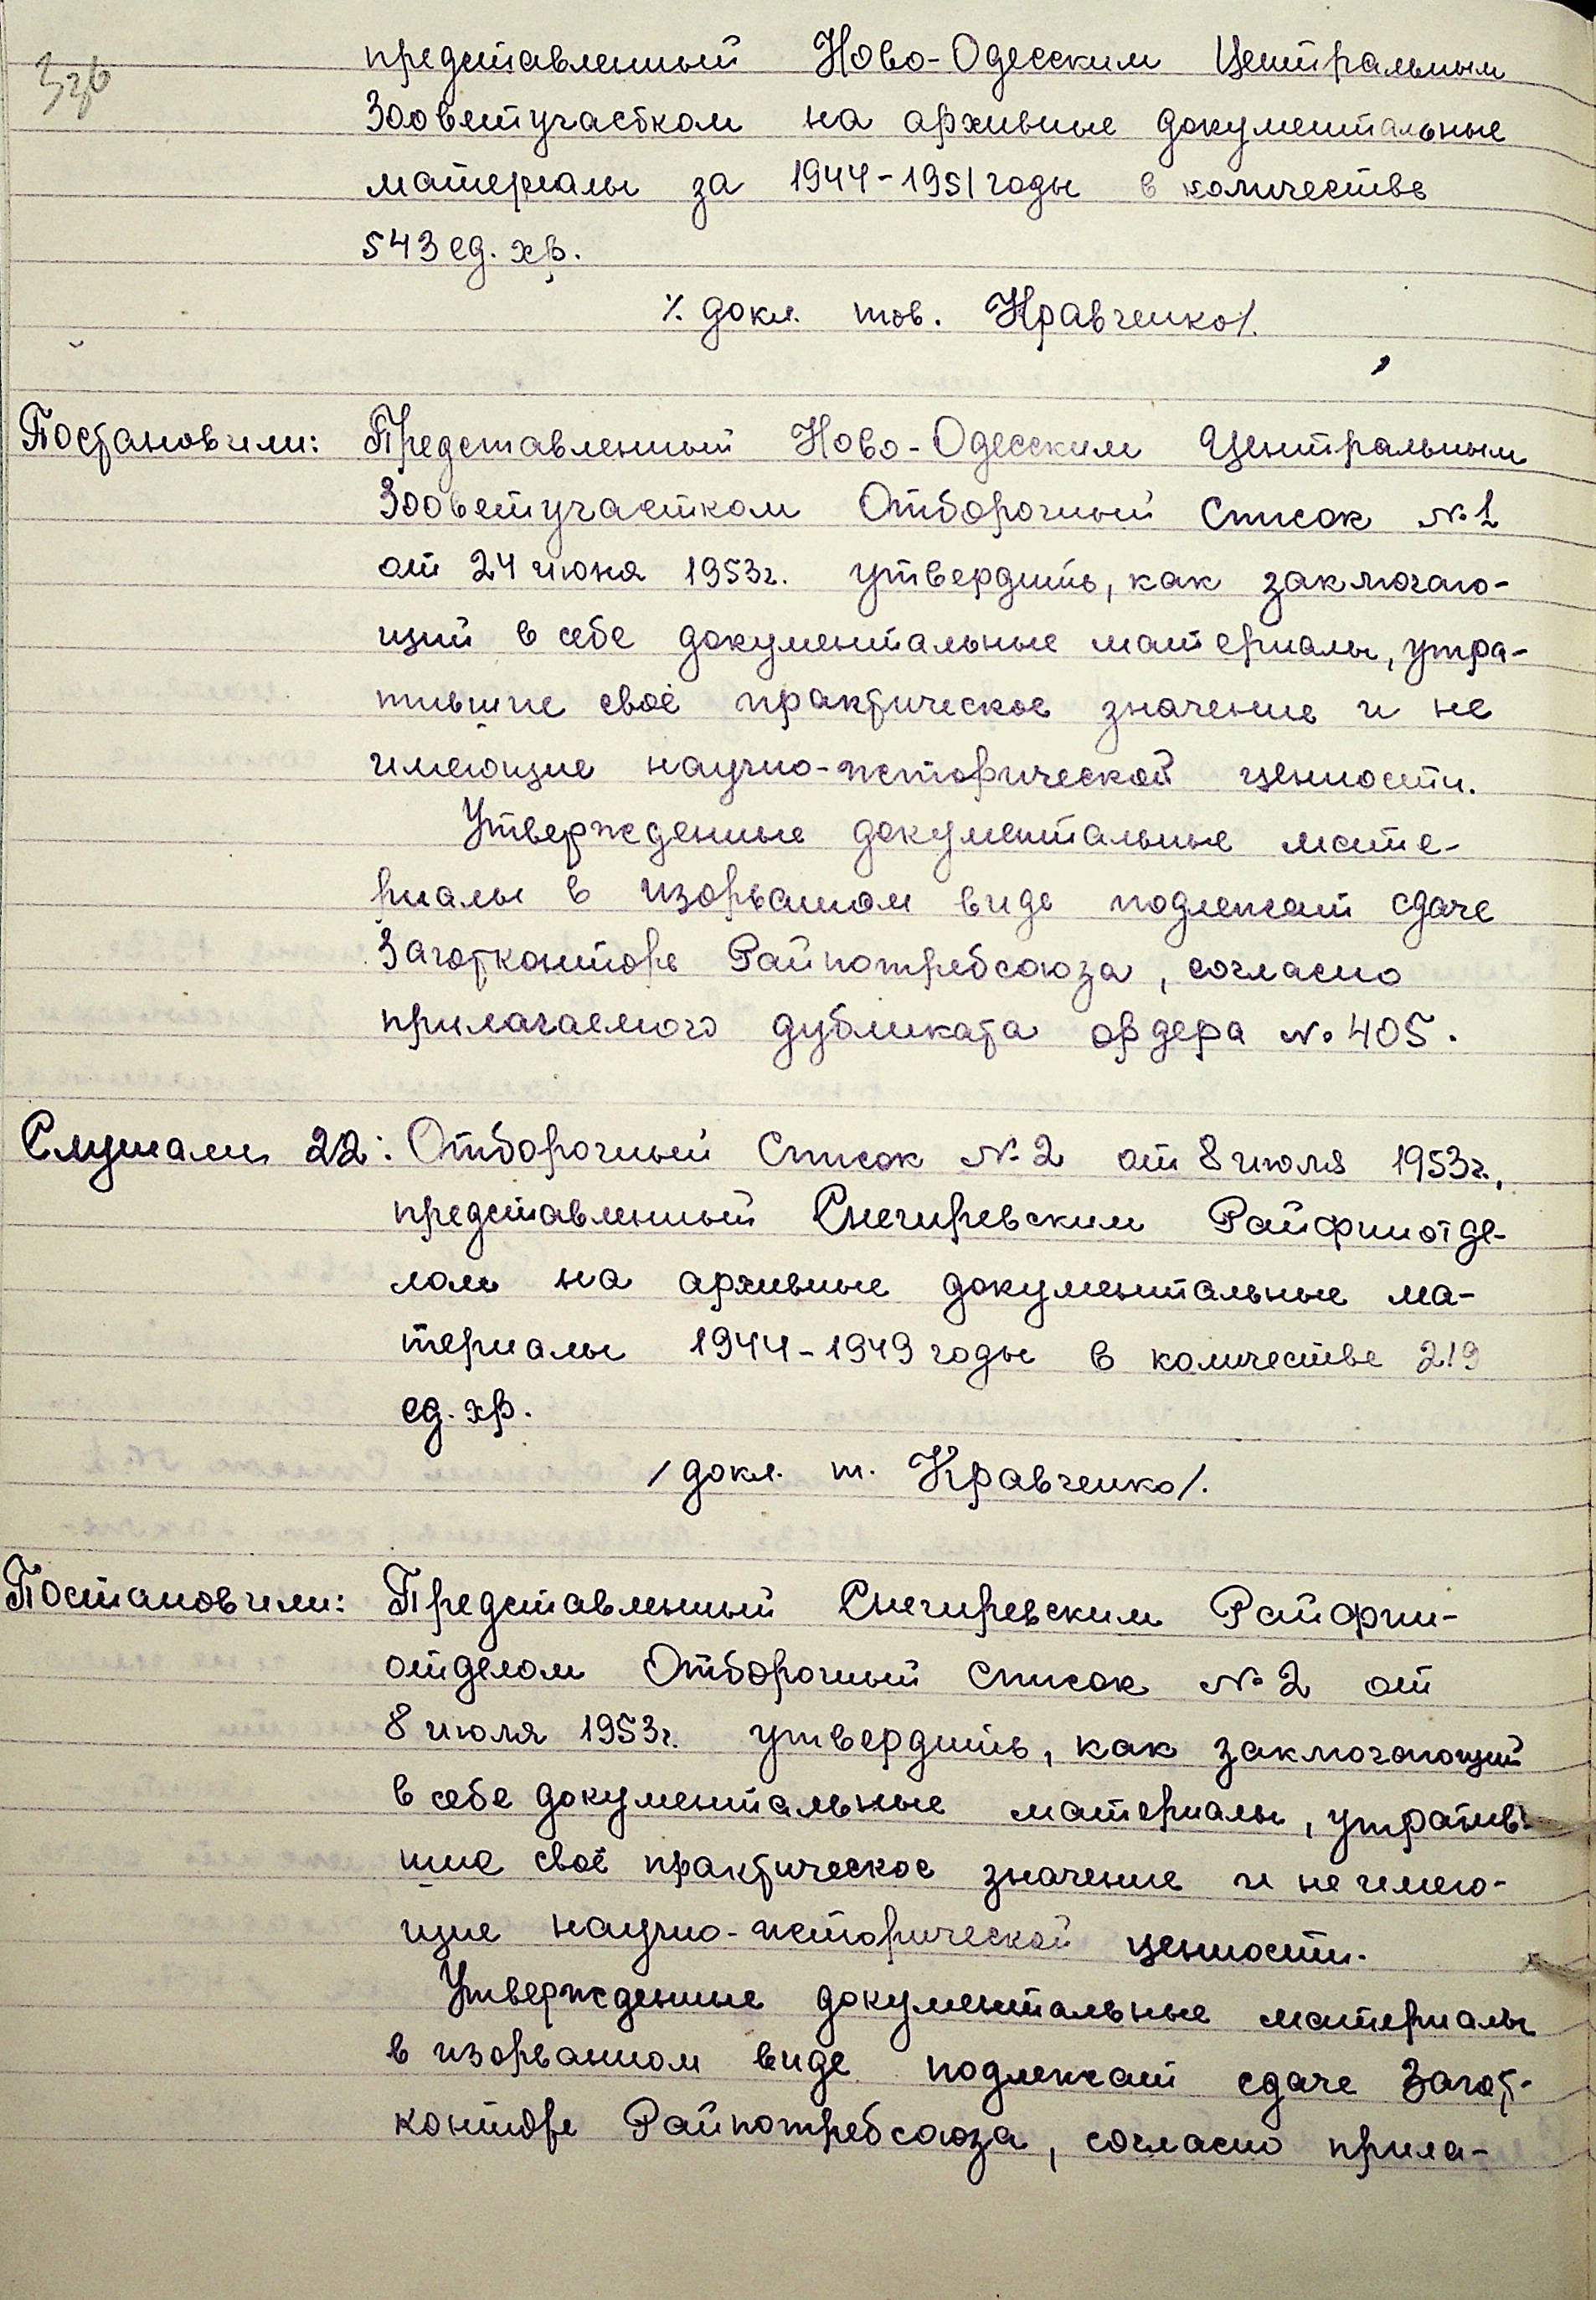 представленный Ново-Одесским Центральным
Зооветучастком на архивные документальные
материалы за 1944-1951 годы в количестве
543 ед. хр.
/. докл. тов. Кравченко/.
Постановили: Представленный Ново-Одесским Центральным
Зооветучастком Отборочный Список №1
от 24 июня 1953г. утвердить, как заключаю-
щий в себе документальные материалы, утра-
тившие своё практическое значение и не
имеющие научно-исторической ценности.
Утвержденные документальные мате-
риалы в изорванном виде подлежат сдаче
Заготконторе Райпотребсоюза, согласно
прилагаемого дубликата ордера №405.
Слушали 22: Отборочный Список №2 от 8 июля 1953г.,
представленный Снегиревским Райфинотде-
лом на архивные документальные ма-
териалы 1944-1949 годы в количестве 219
ед. хр.
/докл. т. Кравченко/.
Постановили: Представленный Снегиревским Райфин-
отделом Отборочный список №2 от
8 июля 1953г. утвердить, как заключающий
в себе документальные материалы, утратив-
шие своё практическое значение и не имею-
щие научно-исторической ценности.
Утвержденные документальные материалы
в изорванном виде подлежат сдаче Загот-
конторе Райпотребсоюза, согласно прила-